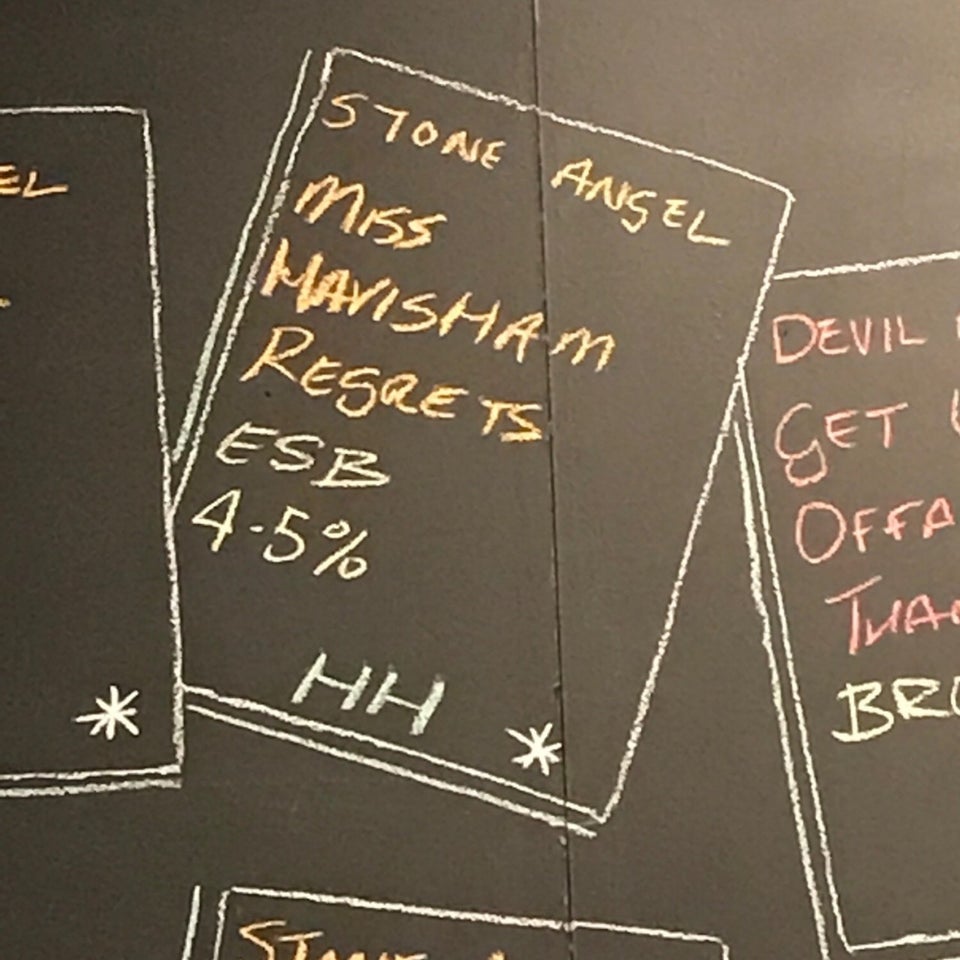 EL
STONE ANGEL
MISS
HAVISHAM
REGRETS
ESB
4-5%
HH *
*
DEVIL
GET
OFFA
THA
BRO
STONE